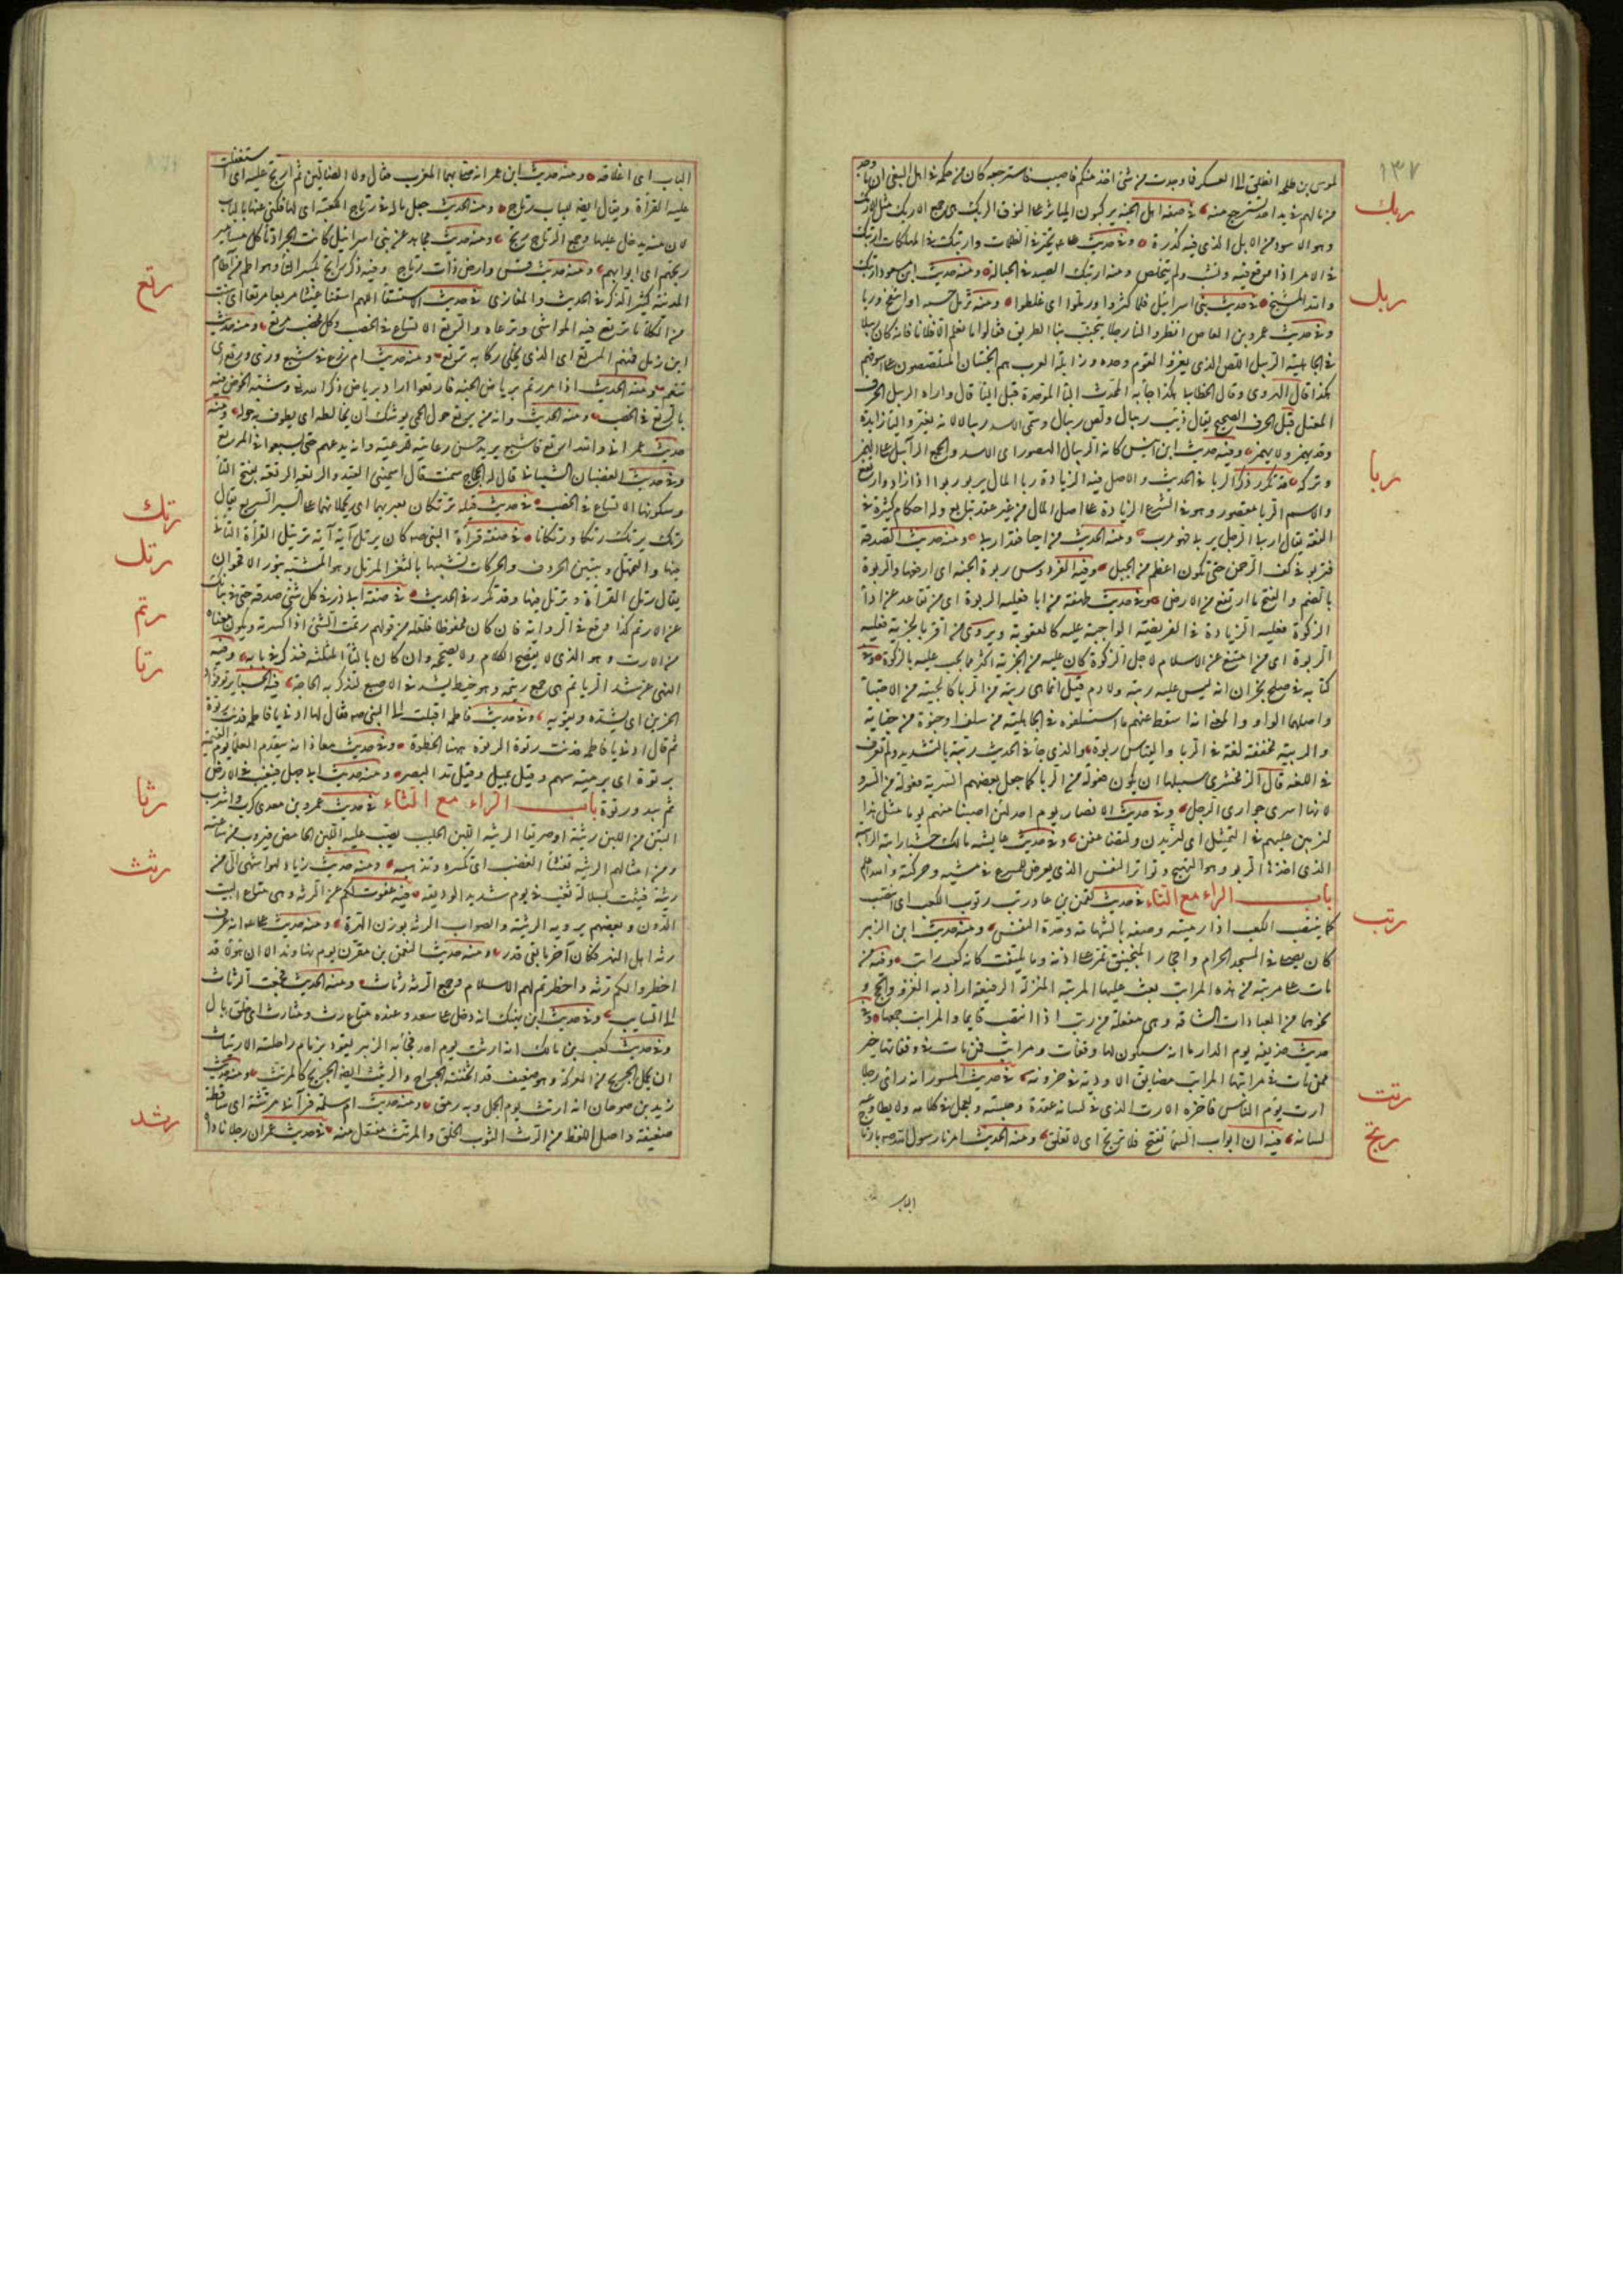 ١٣٧
ربك
ربل
ربا
رتب
رتت
رتج
لموسى بن طلحة انطلق الى العسكر فما وجدت من شئ اخذ منكم فاصيب فاسترجعه كان من حكمه في اهل البغي ان ما وجد
من مالهم في يد احد يسترجع منه في صفة اهل الجنة يركبون المياثر على النوق الربك هي جمع الاربك مثل الارمك
وهو الاسود من الابل الذي فيه كدرة وفي حديث على تحير في الظلمات وارتبك في الهلكات ارتبك
في الامر اذا وقع فيه ونشب ولم يتخلص ومنه ارتبك الصيد في الحبالة ومنه حديث ابن مسعود ارتبك
والله الشيخ في حديث بني اسرائيل فلما كثروا وربلوا اى غلظوا ومنه تربل جسمه اذا انتفخ وربا
وفي حديث عمرو بن العاص انظروا لنا رجلا يتجنب بنا الطريق فقالوا ما نعلم الا فلانا فانه كان ربيلا
في الجاهلية الربيل اللص الذي يغزو القوم وحده ورابلة العرب هم الخبثاء المتلصصون على اسوقهم
هكذا قال الهروى وقال الخطابي هكذا جاء به المحدث بالباء الموحدة قبل الياء قال واراه الريبل الحرف
المعتل قبل الحرف الصحيح يقال ذيب ريبال ولص ريبال وسمى الاسد ريبالا لانه يغير والياء زايدة
وقد يهمز ولا يهمز ومنه حديث ابن انيس كانه الريبال الهصور اى الاسد والجمع الرابيل على الهمز
وتركه قد تكرر ذكر الربا في الحديث والاصل فيه الزيادة ربا المال يربو ربوا اذا زاد وارتفع
والاسم الربا مقصور وهو في الشرع الزيادة على اصل المال من غير عقد تبايع وله احكام كثيرة في
الفقه يقال اربى الرجل يربى فهو مرب ومنه الحديث من اجبى فقد اربى ومنه حديث الصدقة
فتربو في كف الرحمن حتى تكون اعظم من الجبل وفيه الفردوس ربوة الجنة اى ارفعها والربوة
بالضم والفتح ما ارتفع من الارض وفي حديث طهفة من ابى فعليه الربوة اى من تقاعد عن اداء
الزكوة فعليه الزيادة في الفريضة الواجبة عليه كالعقوبة ويروى من اقر بالجزية فعليه
الربوة اى من امتنع عن الاسلام لاجل الزكوة كان عليه من الجزية اكثر مما يجب عليه بالزكوة وفي
كتابه في صلح نجران انه ليس عليهم ربية ولا دم قيل انما هي ربية من الربا كالحبية من الاحتباء
واصلهما الواو والمعنى انه اسقط عنهم ما استسلفوه في الجاهلية من سلف او جنوه من جناية
والربية مخففة لغة في الربا والقياس ربوة والذي جاء في الحديث ربية بالتشديد ولم تعرف
في اللغة قال الزمخشرى سبيلها ان يكون فعولة من الربا كما جعل بعضهم السرية فعولة من السرو
لانها اسرى جوارى الرجل وفي حديث الانصار يوم احد لئن اصبنا منهم يوما مثل هذا
لنربين عليهم في التمثيل اى لنزيدن ولنضاعفن وفي حديث عايشة مالك حشيا رابية الرابية
الذي اخذها الربو وهو النهيج وتواتر النفس الذي يعرض للمسرع في مشيه وحركته والله اعلم
باب الراء مع التاء في حديث لقمن بن عاد رتب رتوب الكعب اى انتصب
كما ينتصب الكعب اذا رميته وصفه بالشهامة وحدة النفس ومنه حديث ابن الزبير
كان يصلى في المسجد الحرام واحجار المنجنيق تمر على اذنه وما يلتفت كانه كعب راتب وفيه من
مات على مرتبة من هذه المراتب بعث عليها المرتبة المنزلة الرفيعة اراد به الغزو والحج و
نحوهما من العبادات الشاقة وهي مفعلة من رتب اذا انتصب قايما والمراتب جمعها وفي
حديث حذيفة يوم الدار ما انه سيكون لها وقفات ومراتب فمن مات في وقفاتها خير
ممن مات في مراتبها المراتب مضايق الاودية في حزونة في حديث المسور انه رأى رجلا
ارت يؤم الناس فاخره الارت الذي في لسانه عقدة وحبسة ويعجل في كلامه ولا يطاوعه
لسانه فيه ان ابواب السماء تفتح فلا ترتج اى لا تغلق ومنه الحديث امرنا رسول الله صه بارتاج
الباب
رتع
رتك
رتل
رتم
رتا
رثا
رثث
رثد
الباب اى اغلاقه ومنه حديث ابن عمر انه صلى بهم المغرب فقال ولا الضالين ثم ارتج عليه اى استغلقت
عليه القراءة ويقال ايضا للباب رتاج ومنه الحديث جعل ماله في رتاج الكعبة اى لها فكنى عنها بالباب
لان منه يدخل عليها وجمع الرتاج رتج ومنه حديث مجاهد عن بني اسرائيل كانت الجراد تاكل مسامير
رتجهم اى ابوابهم ومنه حديث قس وارض ذات رتاج وفيه ذكر راتج بكسر التاء وهو اطم من آطام
المدينة كثير الذكر في الحديث والمغازى في حديث الاستسقاء اللهم اسقنا غيثا مربعا مرتعا اى ينبت
من الكلاء ما ترتع فيه المواشى وترعاه والرتع الاتساع في الخصب وكل مخصب مرتع ومنه حديث
ابن زمل فمنهم المرتع اى الذي يخلى ركابه ترتع ومنه حديث ام زرع في شبع ورى ورتع اى
تنعم ومنه الحديث اذا مررتم برياض الجنة فارتعوا اراد برياض ذكر الله وشبه الخوض فيه
بالرتع في الخصب ومنه الحديث وانه من يرتع حول الحمى يوشك ان يخالطه اى يطوف به حوله ومنه
حديث عمر انى والله ارتع فاشبع يريد حسن رعايته للرعية وانه يدعهم حتى يشبعوا في المرتع
وفي حديث الغضبان الشيبانى قال له الحجاج سمنت قال اسمننى القيد والرتعة الرتعة بفتح التاء
وسكونها الاتساع في الخصب في حديث قيلة ترتكان بعيريهما اى يحملانهما على السير السريع يقال
رتك يرتك رتكا ورتكانا في صفة قراءة النبي صه كان يرتل آية آية ترتيل القراءة التأنى
فيها والتمهل وتبيين الحروف والحركات تشبيها بالثغر المرتل وهو المشبه بنور الاقحوان
يقال رتل القراءة وترتل فيها وقد تكرر في الحديث في صفة ابى ذر في كل شئ صدقة حتى في بيانك
عن الارتم كذا وقع في الرواية فان كان محفوظا فلعله من قولهم رتمت الشئ اذا كسرته ويكون معناه
من الارت وهو الذي لا يفصح الكلام ولا يصححه وان كان بالثاء المثلثة فنذكر في بابه وفيه
النهى عن شد الرتايم هي جمع رتيمة وهو خيط يشد في الاصبع لتذكر به الحاجة فيه الحسا يرتو فؤاد
الحزين اى يشده ويقويه وفي حديث فاطمة اقبلت الى النبي صه فقال لها ادنى يا فاطمة فدنت رتوة
ثم قال ادنى يا فاطمة فدنت رتوة الرتوة ههنا الخطوة وفي حديث معاذ انه يتقدم العلماء يوم القيمة
برتوة اى برمية سهم وقيل بميل وقيل مد البصر ومنه حديث ابى جهل فيغيب في الارض
ثم يبدو رتوة باب الراء مع الثاء في حديث عمرو بن معدى كرب واشرب
التبن من اللبن رثيئة او صريفا الرثيئة اللبن الحليب يصب عليه اللبن الحامض فيروب من ساعته
ومن امثالهم الرثيئة تفثأ الغضب اى تكسره وتذهبه ومنه حديث زياد لهو اشهى الى من
رثيئة فثئت بسلالة ثغب في يوم شديد الوديقة فيه عفوت لكم عن الرثة وهي متاع البيت
الدون وبعضهم يرويه الرثية والصواب الرثة بوزن الهرة ومنه حديث على انه عرف
رثة اهل النهر فكان آخر ما بقى قدر ومنه حديث النعمن بن مقرن يوم نهاوند الا ان هؤلاء قد
اخطروا لكم رثة واخطرتم لهم الاسلام وجمع الرثة رثاث ومنه الحديث فجمعت الرثاث
الى السايب وفي حديث ابن نهيك انه دخل على سعد وعنده متاع رث ومثال رث اى خلق بال
وفي حديث كعب بن مالك انه ارتث يوم احد فجاء به الزبير يقود بزمام راحلته الارتثاث
ان يحمل الجريح من المعركة وهو ضعيف قد اثخنته الجراح والرثيث ايضا الجريح كالمرتث ومنه حديث
زيد بن صوحان انه ارتث يوم الجمل وبه رمق ومنه حديث ام سلمة فرآنى مرتثة اى ساقطة
ضعيفة واصل اللفظ من الرث الثوب الخلق والمرتث مفتعل منه في حديث عمر ان رجلا ناداه